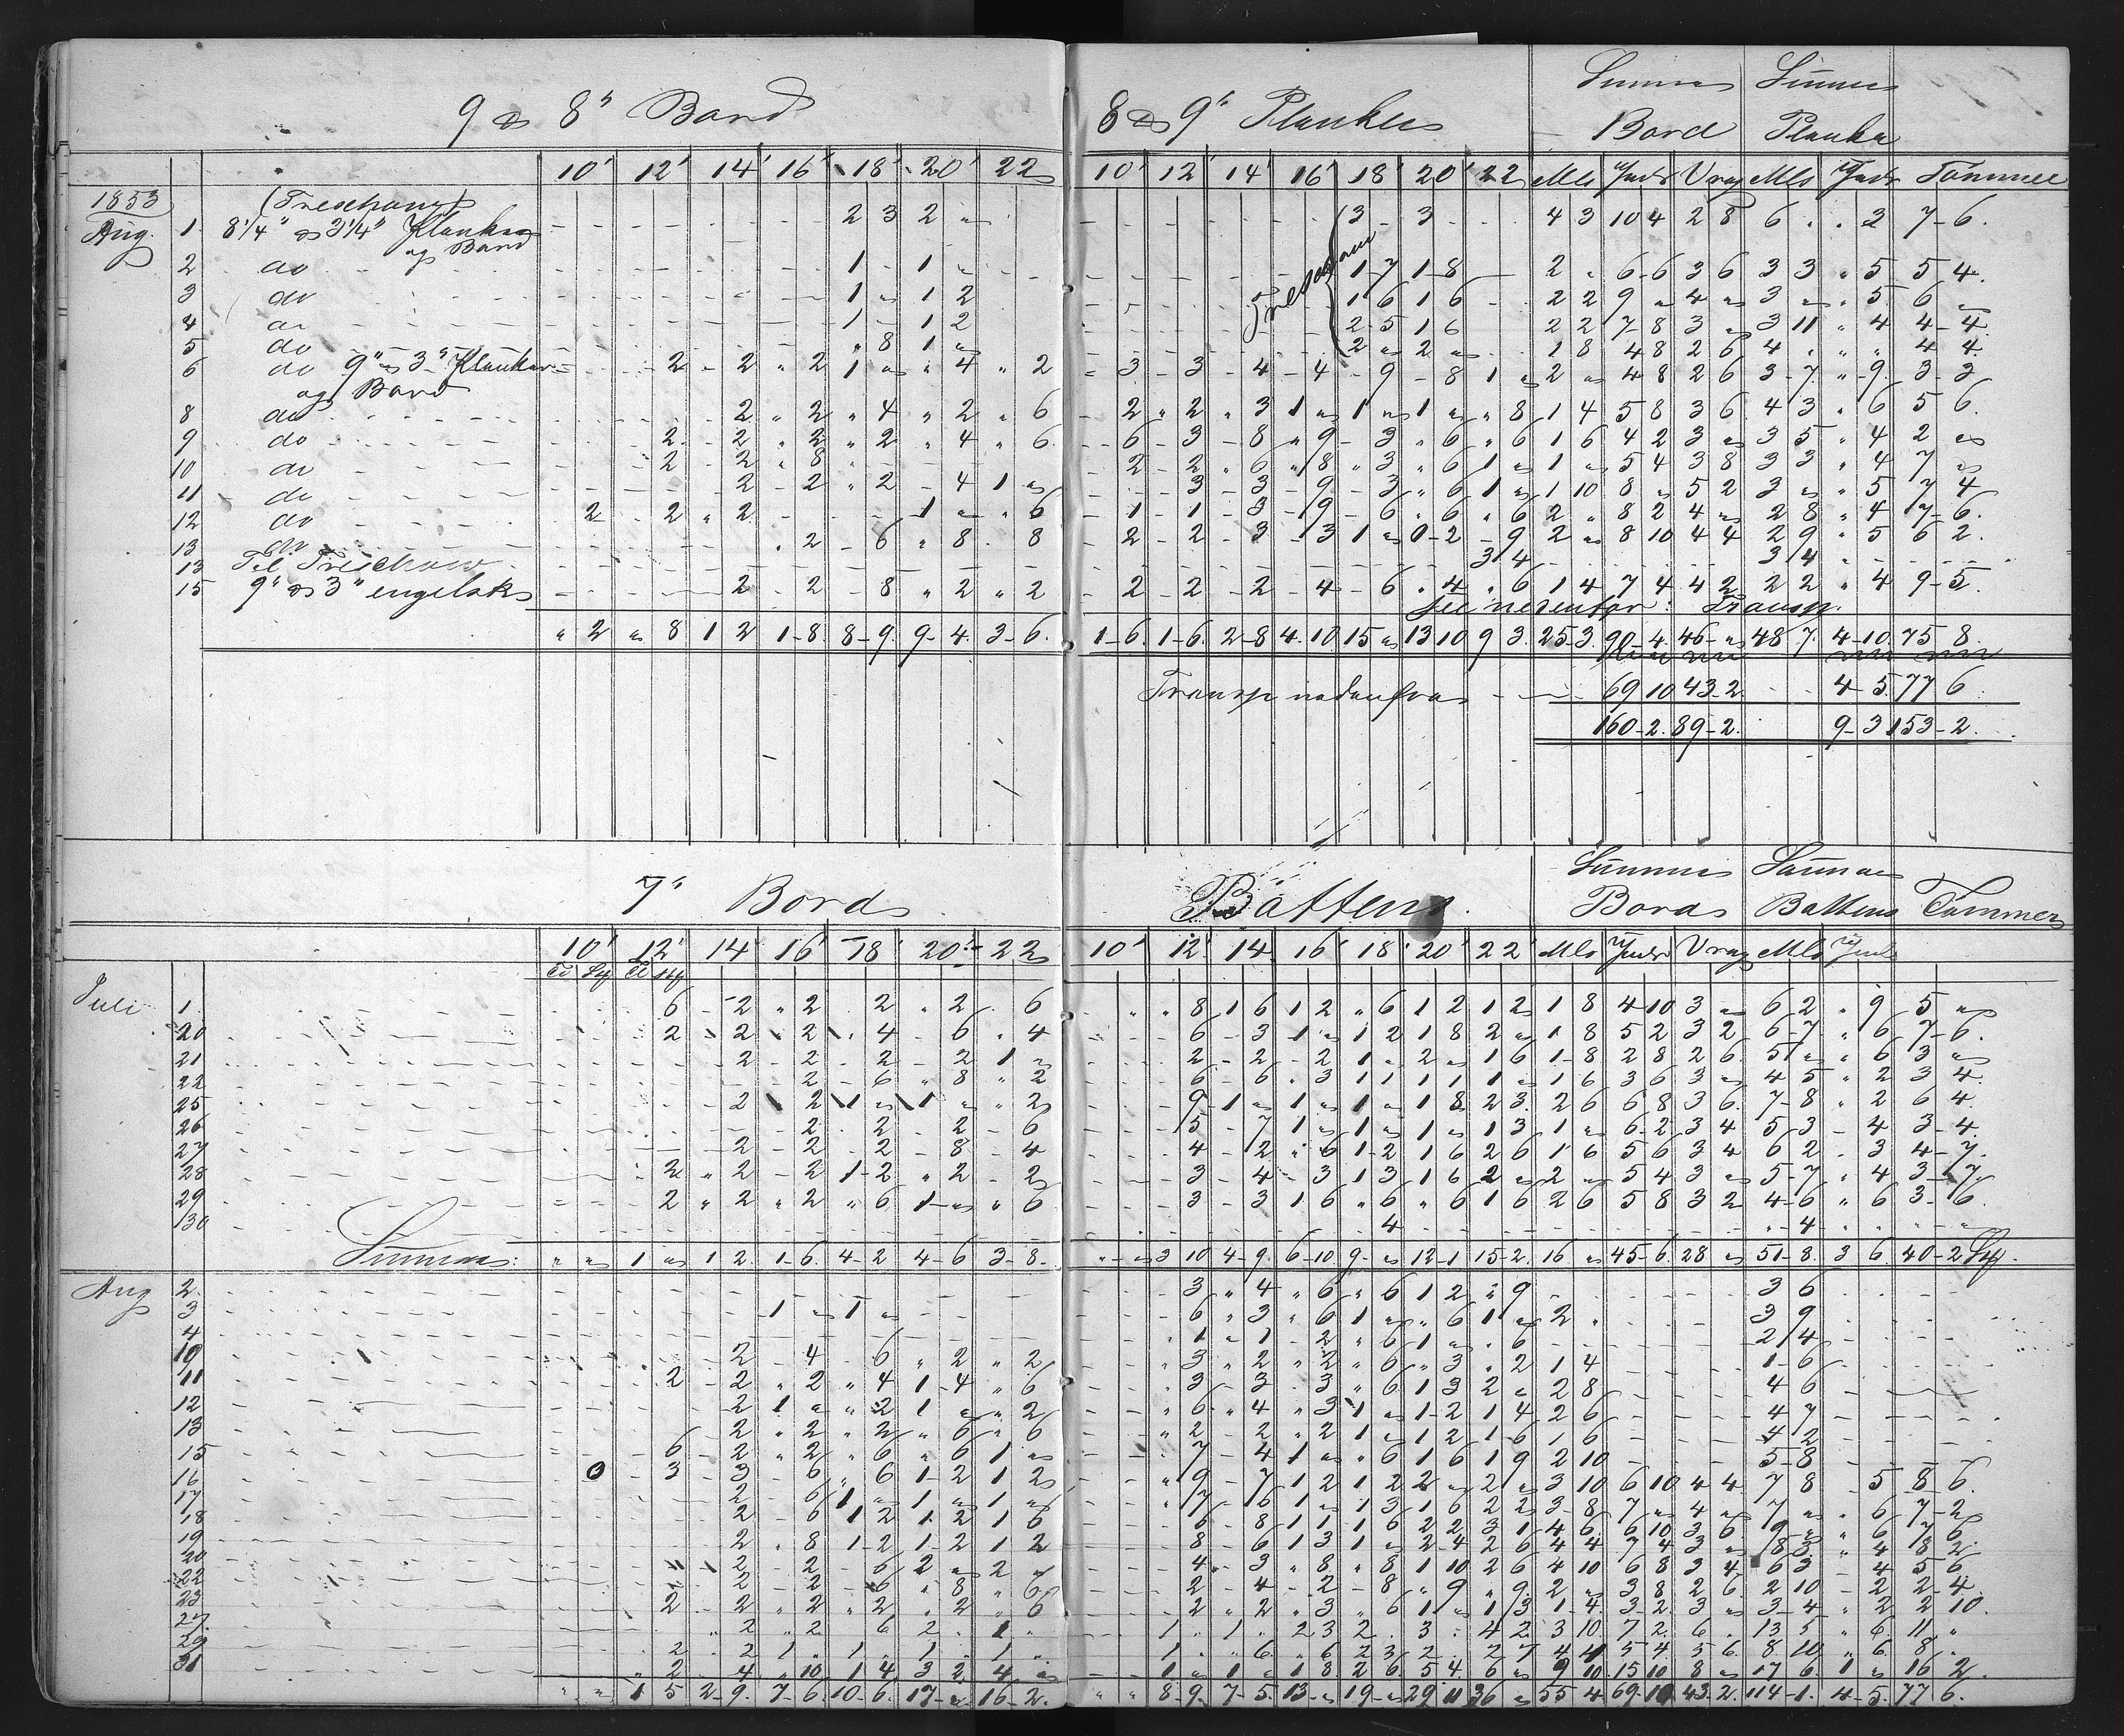 9 & 8" Bord 8 & 9" Planker Summa Bord Summa Planker
10' 12' 14' 16' 18' 20' 22 10' 12' 14' 16' 18' 20' 22 Mls Undr Vrag Mls Undr Tømmer
1853 (Treschows)
Aug. 1. 8 1/4" & 3 1/4" Planker og Bord 2 3 2 " 3 - 3 4 3 10 4 2 8 6 . . 3 7-6.
2 do 1 - 1 " 1-7 1-8 2 " 6-6 3 6 3 3 " 5 5 4.
3 do 1 " 1 2 1 6 1 6 2 2 9 " 4 " 3 " " 5 6 "
4 do 1 - 1 2 2-5 1 6 2 2 7-8 3 " 3 11 " 4 4-4.
5 do " 8 1 " 2 " 2 " 1 8 4 8 2 6 4 . " " 4 4.
6 do 9" & 3" Planker og Bord 2 - 2 " 2 1 " " 4 " 2 - 3 - 3 - 4 - 4 - 9 - 8 1 " 2 " 4 8 2 6 3-7. " 9. 3-3
8 do 2 " 2 " 4 " 2 " 6 - 2 " 2 " 3 1 " 1 " 1 " " 8 1 4 5 8 3 6 4 3 " 6 5 6.
9 do 2 - 2 " 2 " 2 " 4 " 6 - 6 - 3 - 8 " 9 - 3 " 6 " 6 1 6 4 2 3 " 3 5 " 4 2 "
10 do 2 - 2 " 8 - 2 - 2 " 6 " 8 " 3 " 6 1 " 1 " 5 4 3 8 3 3 " 4 7 "
11 do 2 - 2 " 2 - 4 1 " - 3 - 3 - 9 - 3 " 6 1 " 1 10 8 " 5 2 3 " " 5 7 4
12 do 2 - 2 " 2 1 " " 6 - 1 - 1 - 3 - 9 - 6 " 6 " 6 2 " 8 2 4 " 2 8 " 4 7-6.
13 do " 2 - 6 " 8 - 8 - 2 - 2 - 3 - 3 1 " 0-2 - 9 2 " 8 10 4 4 2 9 " 5 6 2.
13 Til Treschow 3 4 3 4
15 9" & 3" engelsk 2 - 2 - 8 " 2 " 2 - 2 - 2 - 2 - 4 - 6 " 4 " 6 1 4 7 4 4 2 2 2 " 4 9-5.
see nedenfor: Transp.
" 2 " 8 1 2 1-8 8-9 9-4. 3-6. 1-6. 1-6. 2-8 4-10 15 " 13 10 9 3. 25-3. 90-4 46-" 48 7. 4-10. 75 8.
Transp nedenfra 69 10 43-2. 4-5 77 6.
160-2. 89-2. 9-3 153-2.
7" Bord Battens Summa Bord Summa Battens Tømmer
10' 12' 14 16' 18' 20' 22 10' 12' 14' 16' 18' 20' 22 Mls Undr Vrag Mls Undr
Juli 1. 6 - 2 " 2 2 " 2 6 " 8 1 6 1 2 " 6 1 2 1 2 1 8 4 10 3 " 6 2 " 9 5 "
20 2 2 2 4 - 6 " 4 - 6 - 3 1 " 1 2 1 8 2 " 1 8 5 2 3 2 6-7. " 6 7-6.
21 2 - 2 - 2 - 2 1 " - 2 - 2 - 2 1 " 2 " 1 6 1-8 2 8 2 6. 5 " " 6 3 "
22 2 - 6 " 8 " 2 - 6 - 6 " 3 1 1 1 1 1 " 1 6 3 6 3 " 4 5 " 2 3 4.
25 2 2 1 " 1 " " 2 - 9 1 " 1 " 1 " 1 8 2 3. 2 6 6 8 3 6. 7-8 " 2 6 4
26 2 - 2 - 2 - 6 - 5 - 7 1 " 1 " 1 " 1 3 1 " 6-2 3 4 5 3 - 4 3-4.
27 2 - 2 - 2 - 8 - 4 - 4 - 2 " 6 1-2 1 6 2 6 1 6 5 6 3 4 6 2 . 3 4-7.
28 2 " 2 - 2 1-2 " 2 - 2 - 3 - 4 - 3 1 3 1 6 2 " 2 " 5 4 3 " 5-7 " 4 3-7.
29 2 " 2 " 2 " 6 1-" " 6 - 3 - 3 1 6 " 6 " 6 1 6 2 6 5 8 3 2 4-6 " 6 3-6.
30 4 " 4 " "
Summa: " " 1 " 1 2. 1-6. 4-2 4-6 3-8. "-" 3 10 4-9. 6-10 9.-" 12-1 15-2. 16 " 45-6. 28 " 51-8. 3 6. 40-2
Aug 2. 3 " 4 " 6 " 6 1 2 " 9 3 6
3 1 " 1 " 6 " 3 " 6 1 " " 6 1 " 2 " 3 9
4 1 - 1 - 2 " 6 1 " " 6 2 4
10 2 - 4 - 6 " 2 " 2 " 3 " 2 " 2 " 6 " 3 " 2 1 4 1-6
11 2 - 2 " 2 " 4 1-4 " 6 3 - 3 - 3 " 6 1 3 2 " 2 8 4 6
12 2 1 " " 2 1 " " 2 " 6 " 4 " 3 1 " 1-2 1 4 2 6 4 7
13 2 " 2 " 2 " 6 " 6 " 2 - 2 " 2 1 " 1 2 1 6 1 6 4 2
15 6 - 2 " 2 " 6 " 6 1 " - 7 - 4 1 " " 6 1 6 1 9 2 10 5-8
16 3 - 3 - 3 - 6 " 6 1-2 1 2 " 9 - 7 1 2 1 2 2 " 2 " 3 10 6 10 4 4 7 8 - 5 8 6.
17 2 - 6 1 " 1 " 1 " " 7 - 6 1 " 1 3 1 6 2 2 3-8 7 " 4 " 7 " " 6 7-2
18 2 - 6 1 2 1-2 1 6 6 - 8 1 1 1 6 2 2 3 1 4 6 6 10 3 6. 9 " " 6 7 6.
19 2 " 8 1-2 1-2 1 2 8 - 6 1 3 1 " 2-4 2 6 4 4 7 4 3 " 8 3 " 4 8 2
20 2 - 2 - 6 2 " 2 " 4 - 3 " 8 " 8 1 10 2 6 4 10 6 8 3 4 6 3 - 4 5 6
22 2 - 2 - 6 " 8 " 6 2 - 4 - 2 - 8 " 9 " 9. 2 " 3 8 2 6. 2 10 - 2 2-4.
23 2 - 2 " 2 " 2 " 2 " 6 2 " 2 " 3 " 6 1 " 1 3 1-4. 3-2. 3 " 3-4 " 2 2 10.
27. 2 " 2 6 2 . 1 " 1 " 1 " 2 3 2 . 3 . 4 2. 3 10. 7 2. 6 . 13 5 " 6. 11 "
29 2 . 2 1 " 1 . 1 . 1 " 1 . " 6. " 6 2 3 2 . 2 7 4 4 5 4. 5 6. 8 10 " 6. 8 .
31 2 4 " 10. 1 4. 3 2 4 " 1 " 1 " 1 8. 2 6. 5 4. 6 " 9 10 15 10 8 " 17 6 1 " 16 2.
" " 1 5 2-9. 7-6. 10-6. 17-" 16-2. " " 8-9. 7-5. 13-" 19-" 29 11 36 " 55 4 69. 10 43-2. 114-1. 4-5. 77 6.